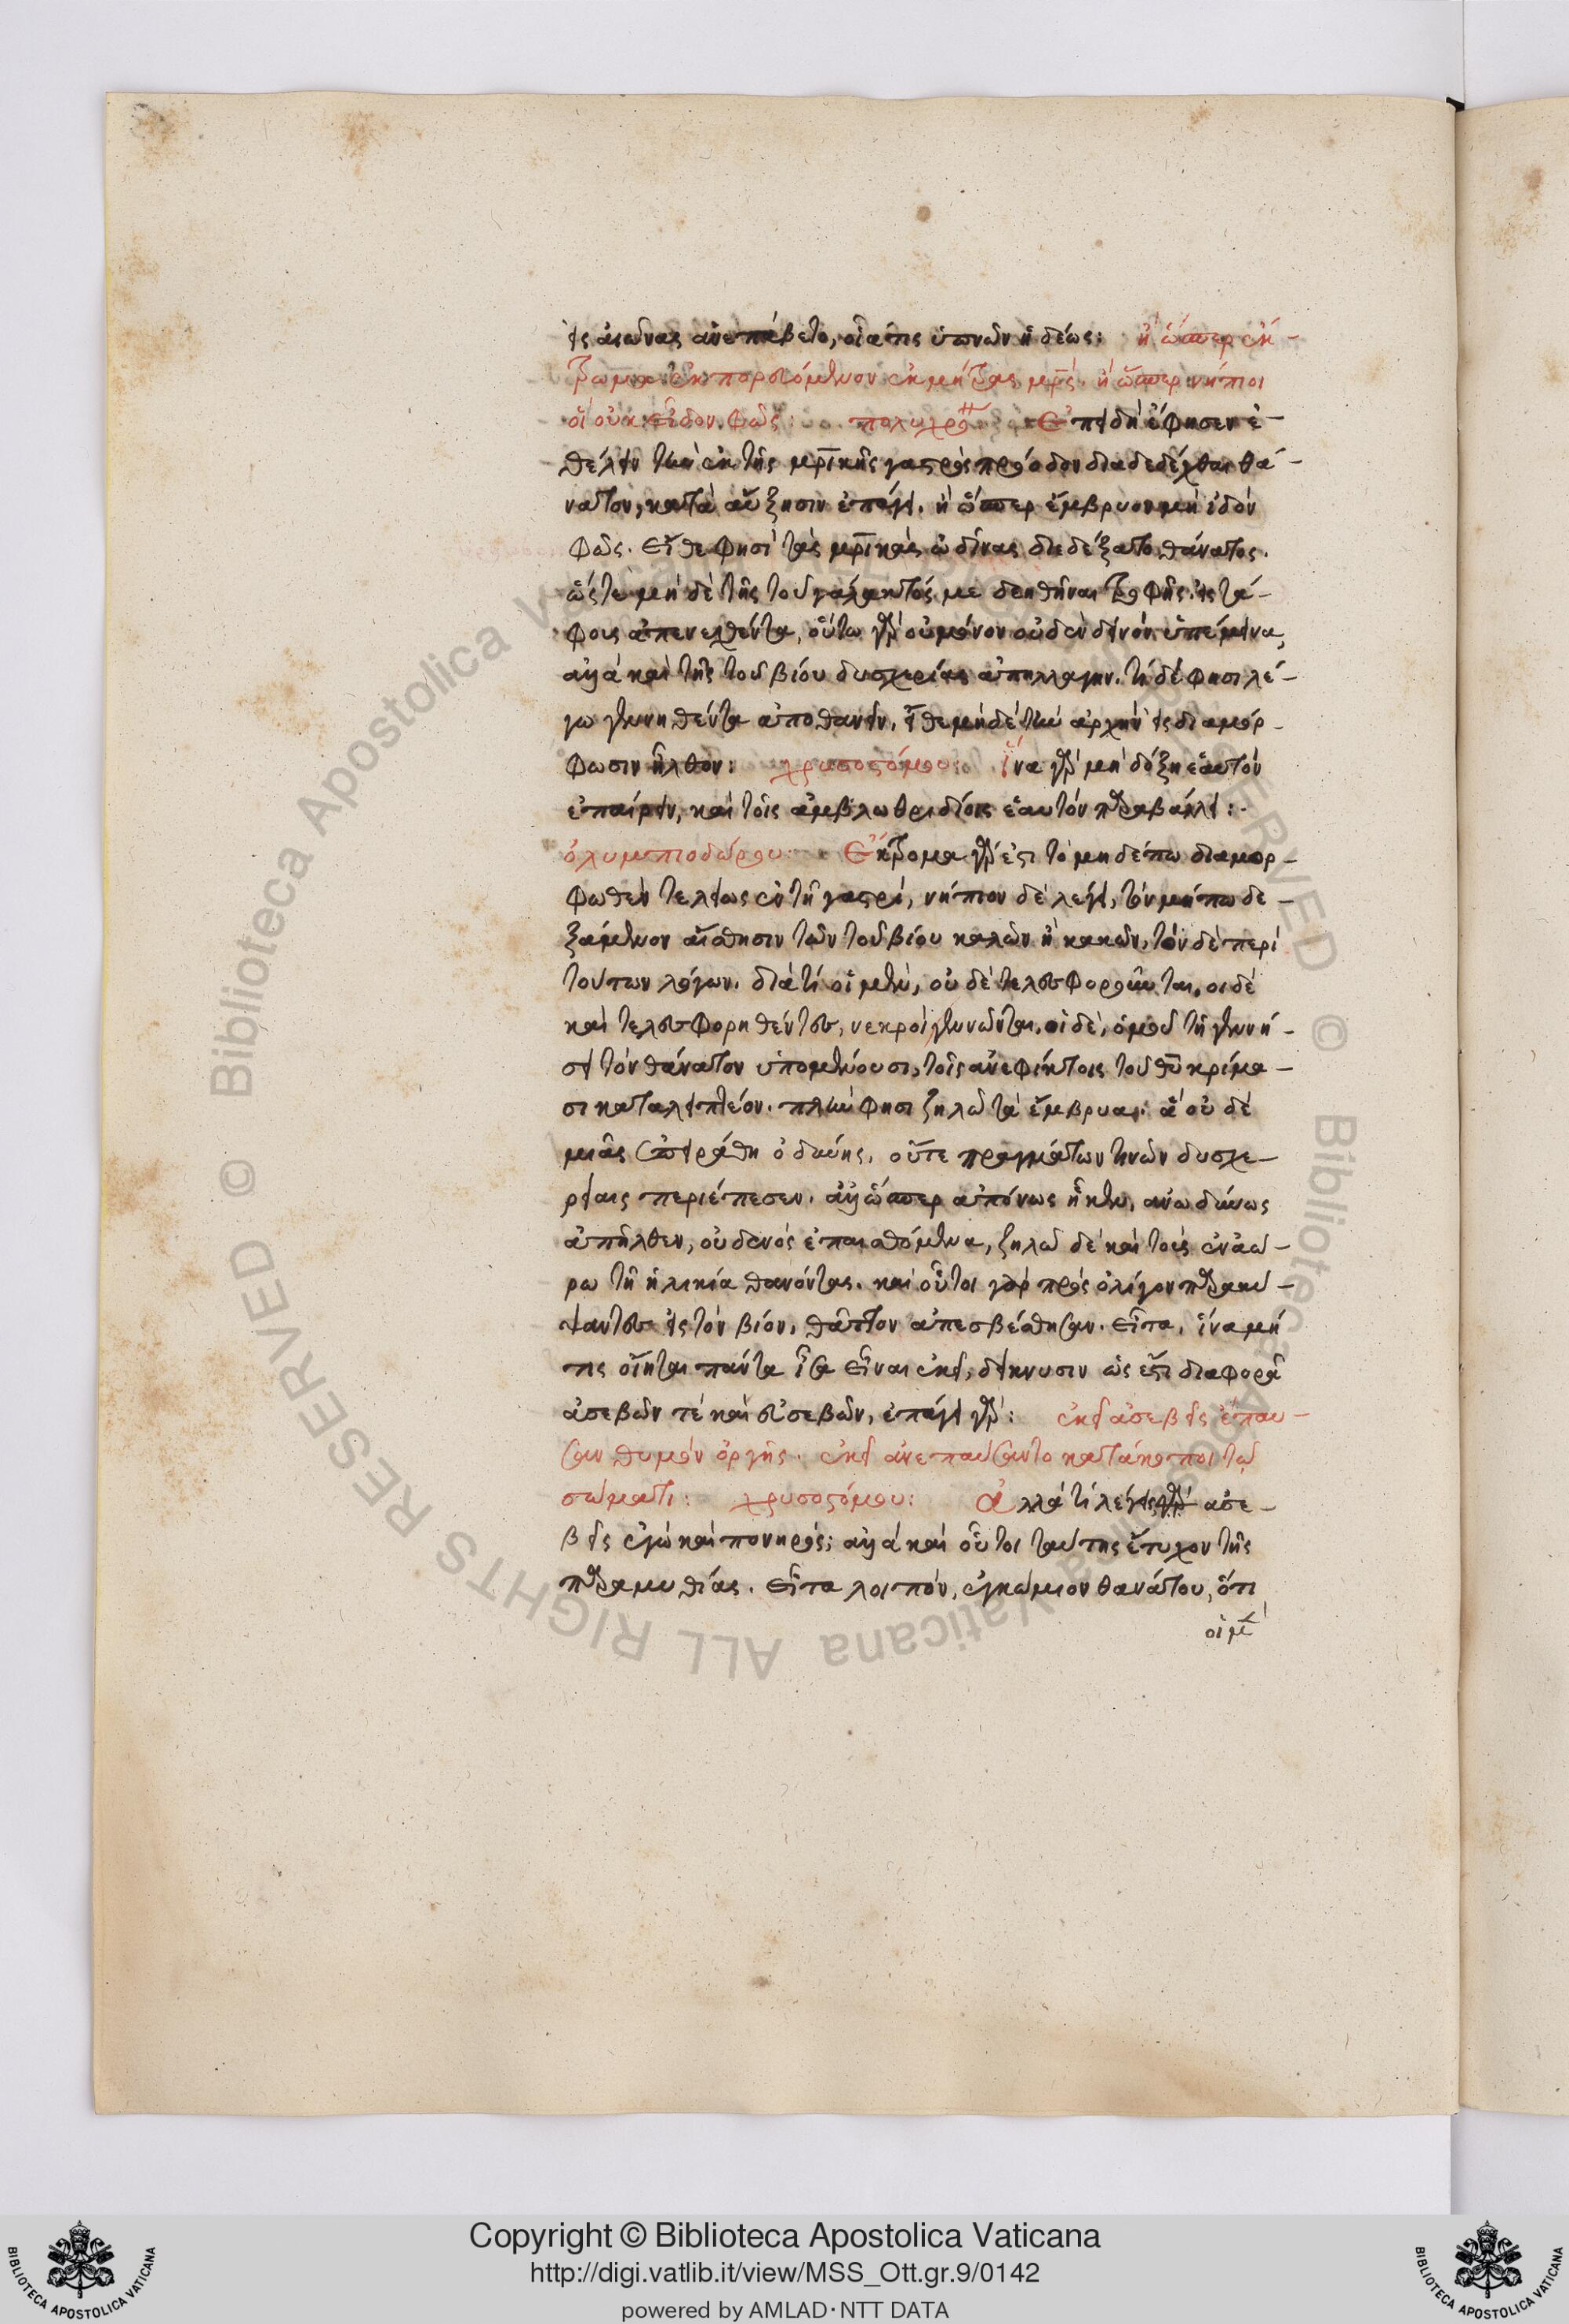 εἰς αἰῶνας ἀνεπαύετο, οἷα τις ὑπνῶν ἡδέως: ἢ ὥσπερ ἔκ-
τρωμα ἐκπορευόμενον ἐκ μήτρας μρς. ἢ ὥσπερ νήπιοι
οἳ οὐκ εἶδον φῶς: πολυχρο Ἐπειδὴ ἔφησεν ἐ-
θέλειν τὴν ἐκ τῆς μρικῆς γαστρὸς πρόοδον διαδεδέχθαι θά-
νατον, κατὰ αὔξησιν ἐπάγει. ἢ ὥσπερ ἔμβρυον μὴ ἰδὸν
φῶς. εἴθε φησὶ τὰς μρικὰς ὠδῖνας διεδέξατο θάνατος.
ὥστε μὴ δὲ τῆς τοῦ γάλακτός με δεηθῆναι τροφῆς. εἰς τά-
φους ἀπενεχθέντα, οὕτω γὰρ οὐ μόνον οὐδὲν δεινὸν ὑπέμεινα,
ἀλλὰ καὶ τῆς τοῦ βίου δυσχερείας ἀπηλλάγην. τί δέ φησι λέ-
γω γεννηθέντα ἀποθανεῖν, εἴθε μηδὲ τὴν ἀρχὴν εἰς διαμόρ-
φωσιν ἦλθον: χρυσοστόμου: Ἵνα γὰρ μὴ δόξῃ ἑαυτὸν
ἐπαίρειν, καὶ τοῖς ἀμβλωθριδίοις ἑαυτὸν παραβάλλει:
ὀλυμπιοδώρου: Ἔκτρομα γάρ ἐστι τὸ μηδέπω διαμορ-
φωθὲν τελείως ἐν τῇ γαστρί, νήπιον δὲ λέγει, τὸν μήπω δε-
ξάμενον αἴσθησιν τῶν τοῦ βίου καλῶν ἢ κακῶν, τὸν δὲ περὶ
τούτων λόγων. διὰ τί οἱ μὲν, οὐδὲ τελεσφοροῦνται, οἱ δὲ
καὶ τελεσφορηθέντες, νεκροὶ γεννῶνται. οἱ δὲ, ὁμοῦ τῇ γεννή-
σει τὸν θάνατον ὑπομένουσι, τοῖς ἀνεφίκτοις τοῦ θυ κρίμα-
σι καταλειπτέον. πλὴν φησι ζηλῶ τὰ ἔμβρυα, ἃ οὐδὲ
μιᾶς ἐπειράθη ὀδύνης, οὔτε πραγμάτων τινῶν δυσχε-
ρείαις περιέπεσεν. ἀλλ' ὥσπερ ἀπόνως ἧκεν, ἀνωδύνως
ἀπῆλθεν, οὐδενὸς ἐπαισθόμενα, ζηλῶ δὲ καὶ τοὺς ἐν ἀώ-
ρω τῇ ἡλικία θανόντας. καὶ οὗτοι γὰρ πρὸς ὀλίγον παρακύ-
ψαντες εἰς τὸν βίον, θᾶττον ἀπεσβέσθησαν. εἶτα, ἵνα μή
τις οἴηται πάντα ἶσα εἶναι ἐκεῖ, δείκνυσιν ὡς ἔστι διαφορὰ
ἀσεβῶν τὲ καὶ εὐσεβῶν, ἐπάγει γάρ: ἐκεῖ ἀσεβεῖς ἔπαυ-
σαν θυμὸν ὀργῆς. ἐκεῖ ἀνεπαύσαντο κατάκοποι τῷ
σώματι: χρυσοστόμου: Ἀλλὰ τί λέγεις ἀσε-
βεῖς ἐγὼ καὶ πονηρός; ἀλλὰ καὶ οὗτοι ταύτης ἔτυχον τῆς
παραμυθίας. εἶτα λοιπὸν, ἐγκώμιον θανάτου, ὅτι
οἱ μὲν
Copyright © Biblioteca Apostolica Vaticana
http://digi.vatlib.it/view/MSS_Ott.gr.9/0142
powered by AMLAD·NTT DATA